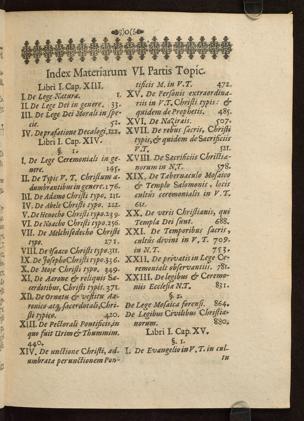 Index Materiarum VI. Partis Topic.
Libri I. Cap. XIII.
I. De Lege Naturæ. 1.
II. De Lege Dei in genere. 33.
III. De Lege Dei Morali in specie. 52.
IV. De præfatione Decalogi. 122.
Libri I. Cap. XIV.
§. 1.
I. De Lege Ceremoniali in genere. 145.
II. De Typis V. T. Christum adumbrantibus in genere. 176.
III. De Adamo Christi typo. 211.
IV. De Abele Christi typo. 222.
V. De Henocho Christi typo. 239.
VI. De Noacho Christi typo. 256.
VII. De Melchisedecho Christi
typo. 271.
VIII. De Isaaco Christi typo. 311.
IX. De Josepho Christi typo. 336.
X. De Mose Christi typo. 349.
XI. De Aarone & reliquis Sacerdotibus, Christi typis. 371.
XII. De Ornatu & vestitu Aaronico atq; sacerdotali, Christi typico. 420.
XIII. De Pectorali Pontificis, in
quo fuit Urim & Thummim.
440.
XIV. De unctione Christi, adumbrata per unctionem Pontificis M. in V. T. 472.
XV. De Personis extraordinariis in V. T. Christi typis: &
quidem de Prophetis. 485.
XVI. De Nazirais. 507.
XVII. De rebus sacris, Christi
typis, & quidem de Sacrificiis
V. T. 521.
XVIII. De Sacrificiis Christianorum in N. T. 578.
XIX. De Tabernaculo Mosaico
& Templo Salomonis, locis
cultus ceremonialis in V. T.
611.
XX. De veris Christianis, qui
Templa Dei sunt. 688.
XXI. De Temporibus sacris,
cultui divini in V. T. 709.
in N. T. 753.
XXII. De privatis in Lege Ceremoniali observantiis. 781.
XXIII. De legibus & Ceremoniis Ecclesiæ N. T. 831.
§. 2.
De Lege Mosaica forensi. 864.
De Legibus Civilibus Christianorum. 880.
Libri I. Cap. XV.
§. 1.
I. De Evangelio in V. T. in cul-